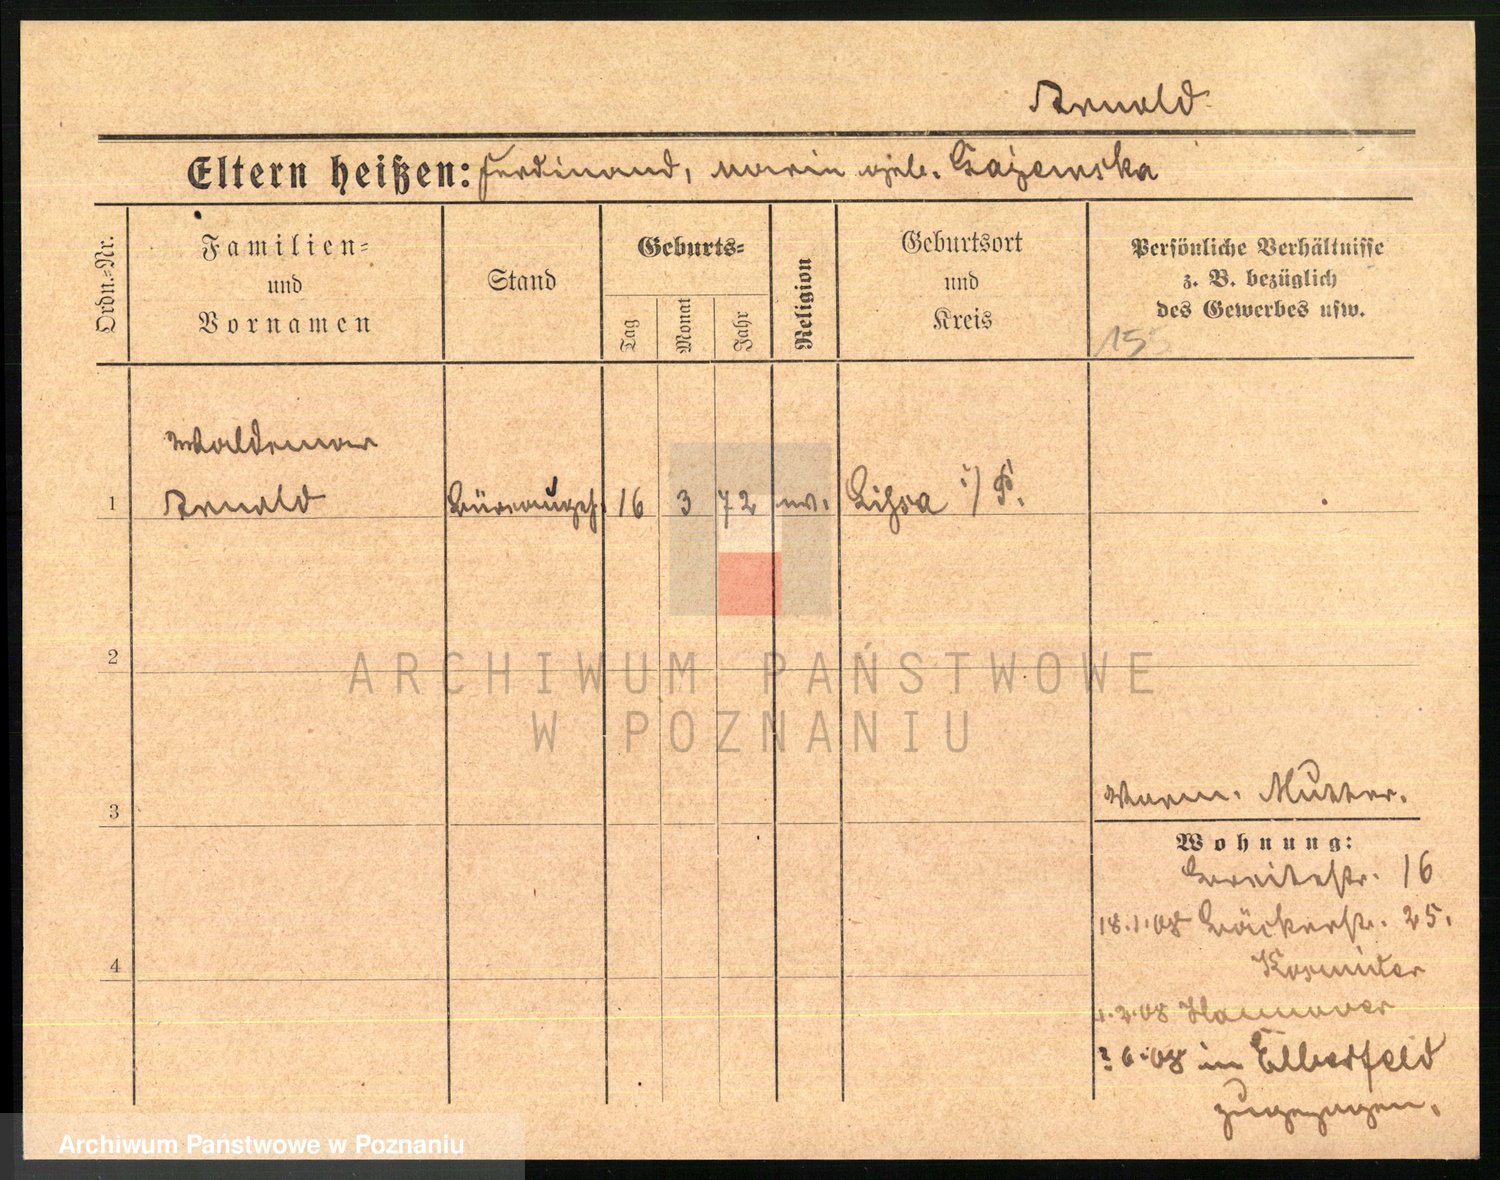 Arnold
Eltern heißen: Ferdinand, Maria geb. Gajewska
Ordn.=Nr.
Familien=
und
Vornamen
Stand
Geburts=
Tag
Monat
Jahr
Religion
Geburtsort
und
Kreis
Persönliche Verhältnisse
z. B. bezüglich
des Gewerbes usw.
155
Waldemar
1 Arnold Büreaugeh. 16 3 72 ev. Lissa i/P.
2
3
4
Mutter.
Wohnung:
Breitestr. 16
18.1.08 Bäckerstr. 25.
Kosmider
1.2.08 Hannover
? 6.08 in Elberfeld
zugezogen.
ARCHIWUM PAŃSTWOWE
W POZNANIU
Archiwum Państwowe w Poznaniu